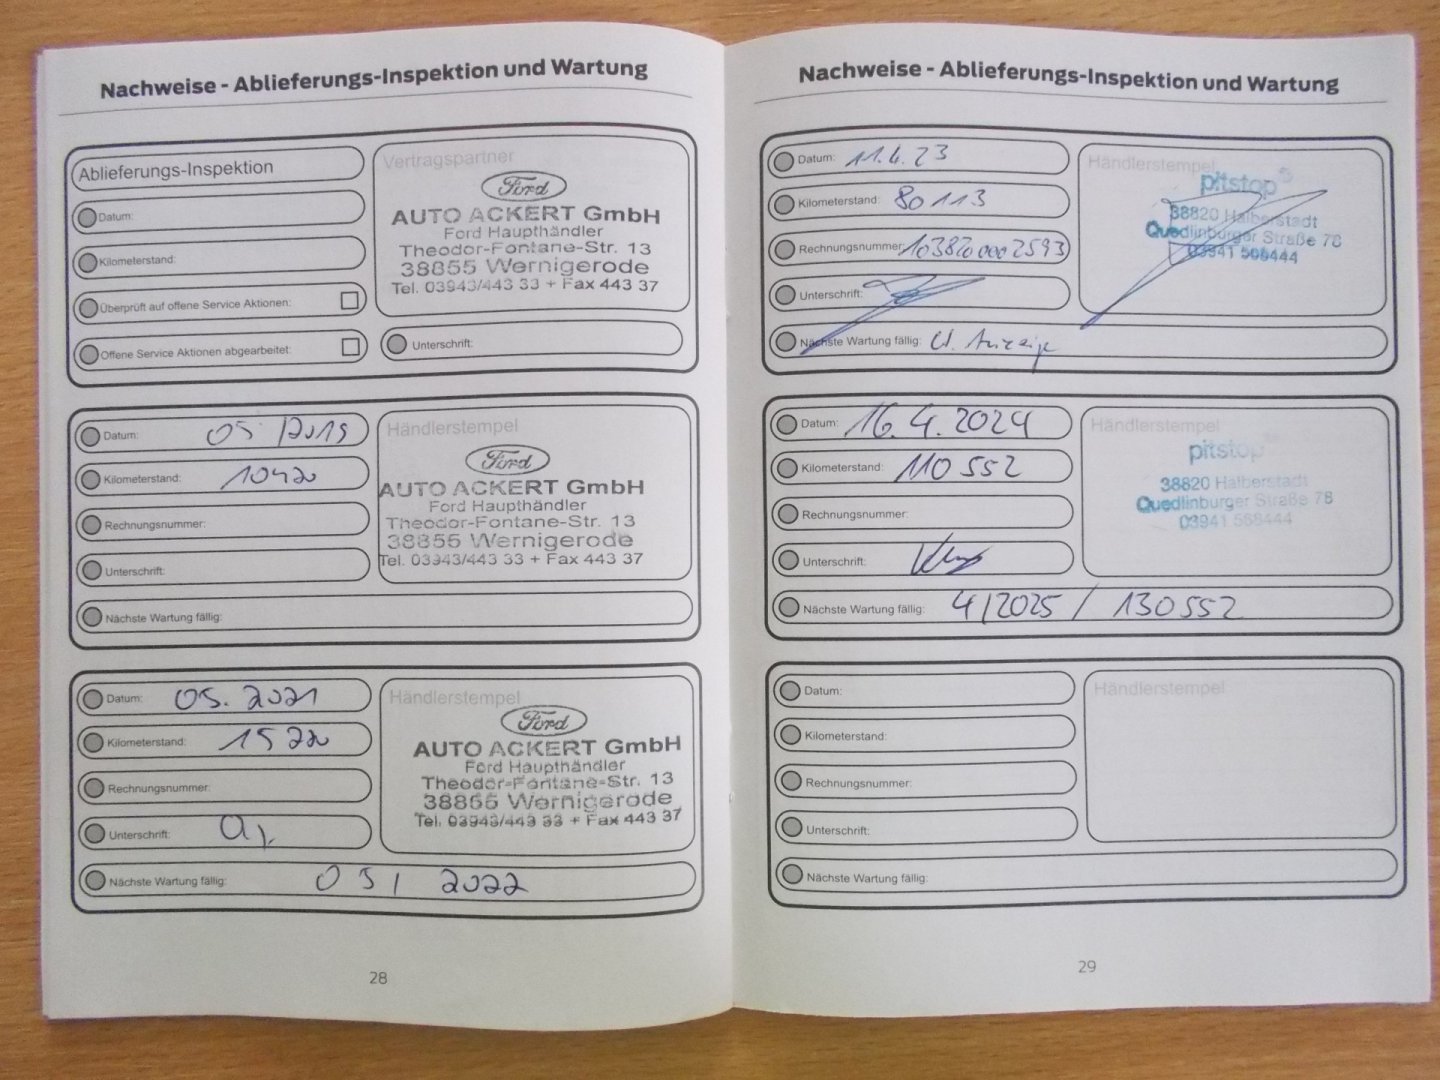 Nachweise - Ablieferungs-Inspektion und Wartung
Ablieferungs-Inspektion
Datum:
Kilometerstand:
Überprüft auf offene Service Aktionen:
Offene Service Aktionen abgearbeitet:
Vertragspartner
Ford
AUTO ACKERT GmbH
Ford Haupthändler
Theodor-Fontane-Str. 13
38855 Wernigerode
Tel. 03943/443 33 + Fax 443 37
Unterschrift:
Datum: 05 / 2019
Kilometerstand: 10420
Rechnungsnummer:
Unterschrift:
Nächste Wartung fällig:
Händlerstempel
Ford
AUTO ACKERT GmbH
Ford Haupthändler
Theodor-Fontane-Str. 13
38855 Wernigerode
Tel. 03943/443 33 + Fax 443 37
Datum: 05. 2021
Kilometerstand:
Rechnungsnummer:
Unterschrift:
Nächste Wartung fällig: 05 / 2022
Händlerstempel
Ford
AUTO ACKERT GmbH
Ford Haupthändler
Theodor-Fontane-Str. 13
38855 Wernigerode
Tel. 03943/443 33 + Fax 443 37
28
Nachweise - Ablieferungs-Inspektion und Wartung
Datum: 11.4.23
Kilometerstand: 80113
Rechnungsnummer: 1038200002593
Unterschrift:
Nächste Wartung fällig: lt. Anzeige
Händlerstempel
pitstop
38820 Halberstadt
Quedlinburger Straße 78
03941 568444
Datum: 16.4.2024
Kilometerstand: 110552
Rechnungsnummer:
Unterschrift:
Nächste Wartung fällig: 4/2025 / 130552
Händlerstempel
pitstop
38820 Halberstadt
Quedlinburger Straße 78
03941 568444
Datum:
Kilometerstand:
Rechnungsnummer:
Unterschrift:
Nächste Wartung fällig:
Händlerstempel
29